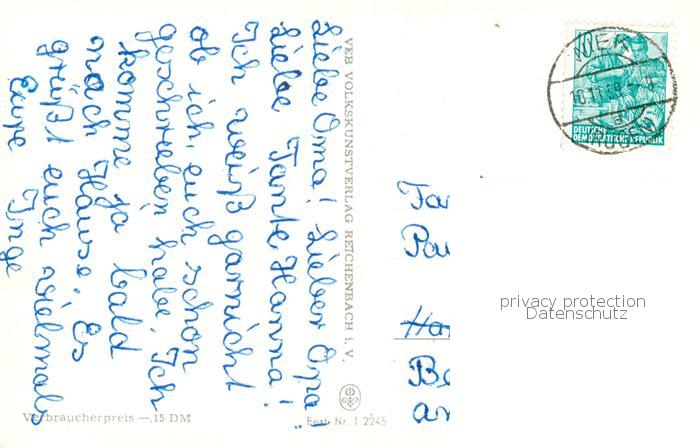 Liebe Oma! Lieber Opa!
Liebe Tante Hanna!
Ich weiß garnicht
ob ich euch schon
geschrieben habe. Ich
komme ja bald
nach Hause. Es
grüßt euch vielmals
Eure Inge
VEB VOLKSKUNSTVERLAG REICHENBACH i. V.
Verbraucherpreis —,15 DM
Best. Nr. 1 2245
DEUTSCHE
DEMOKRATISCHE REPUBLIK
privacy protection
Datenschutz